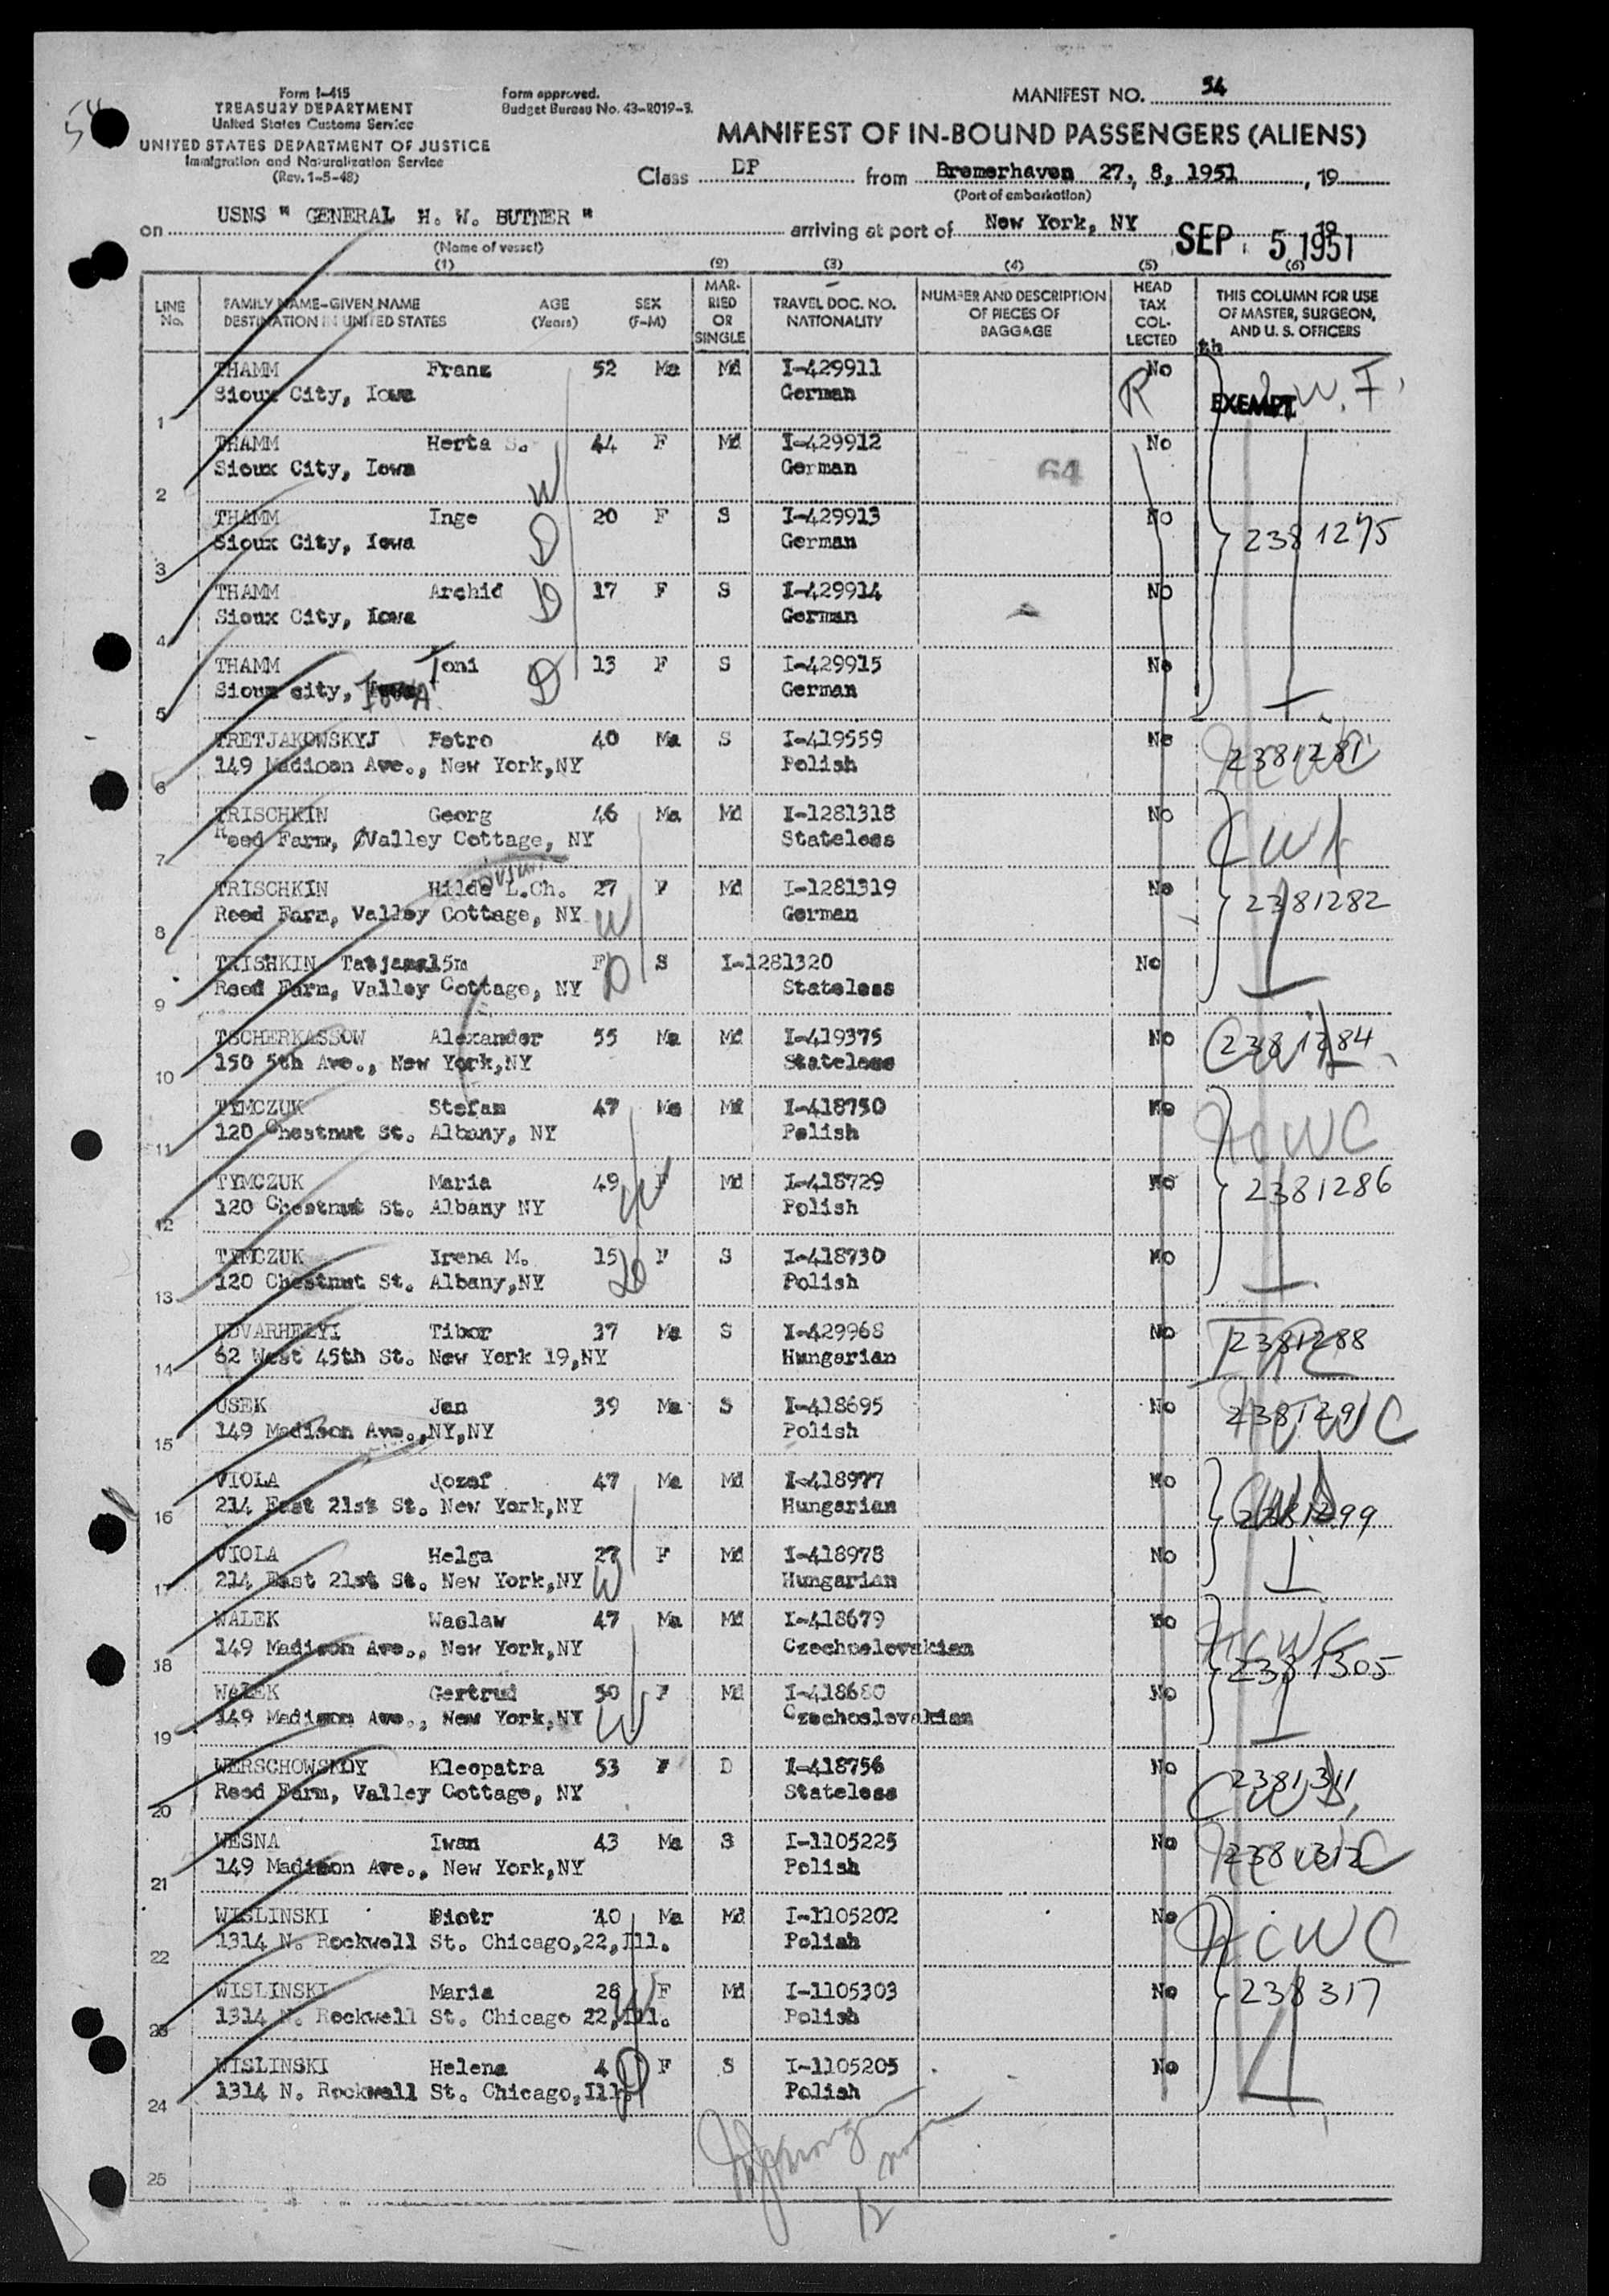 54
Form I-415
TREASURY DEPARTMENT
United States Customs Service
UNITED STATES DEPARTMENT OF JUSTICE
Immigration and Naturalization Service
(Rev. 1-5-48)
Form approved.
Budget Bureau No. 43-R019-3.
MANIFEST NO. 54
MANIFEST OF IN-BOUND PASSENGERS (ALIENS)
Class DP from Bremerhaven 27, 8, 1951, 19
(Port of embarkation)
on USNS " GENERAL H. W. BUTNER " arriving at port of New York, NY SEP 5 1951 19
(Name of vessel)
(1) (2) (3) (4) (5) (6)
LINE No. FAMILY NAME-GIVEN NAME DESTINATION IN UNITED STATES AGE (Years) SEX (F-M) MAR-RIED OR SINGLE TRAVEL DOC. NO. NATIONALITY NUMBER AND DESCRIPTION OF PIECES OF BAGGAGE HEAD TAX COL-LECTED THIS COLUMN FOR USE OF MASTER, SURGEON, AND U. S. OFFICERS
th
THAMM Franz 52 Ma Md I-429911 No
1 Sioux City, Iowa German R EXEMPT L.W.F.
THAMM Herta S. 44 F Md I-429912 No
2 Sioux City, Iowa W German 64
THAMM Inge 20 F S I-429913 No
3 Sioux City, Iowa D German 2381275
THAMM Archid D 17 F S I-429914 No
4 Sioux City, Iowa German
THAMM Toni 13 F S I-429915 No
5 Sioux city, IowA D German
TRETJAKOWSKYJ Petro 40 Ma S I-419559 No 2381281
6 149 Madison Ave., New York,NY Polish
TRISCHKIN Georg 46 Ma Md I-1281318 No
7 Reed Farm, Valley Cottage, NY Stateless CWS
TRISCHKIN Hilde L.Ch. 27 F Md I-1281319 No 2381282
8 Reed Farm, Valley Cottage, NY W German
TRISHKIN Tatjana 15m F S I-1281320 No
9 Reed Farm, Valley Cottage, NY D Stateless
TSCHERKASSOW Alexander 55 Ma Md I-419375 No 2381284
10 150 5th Ave., New York,NY Stateless
TYMCZUK Stefan 47 Ma Md I-418750 No
11 120 Chestnut St. Albany, NY Polish NCWC
TYMCZUK Maria 49 F Md I-418729 No 2381286
12 120 Chestnut St. Albany NY W Polish
TYMCZUK Irena M. 15 F S I-418730 No
13 120 Chestnut St. Albany,NY D Polish
UDVARHELYI Tibor 37 Ma S I-429968 No 2381288
14 62 West 45th St. New York 19,NY Hungarian IRC
USEK Jan 39 Ma S I-418695 No 2381291
15 149 Madison Ave.,NY,NY Polish NCWC
VIOLA Jozef 47 Ma Md I-418977 No
16 214 East 21st St. New York,NY Hungarian 2381299
VIOLA Helga 27 F Md I-418978 No
17 214 East 21st St. New York,NY W Hungarian
WALEK Waslaw 47 Ma Md I-418679 No NCWC
18 149 Madison Ave., New York,NY Czechoslovakian 2381305
WALEK Gertrud 50 F Md I-418680 No
19 149 Madison Ave., New York,NY W Czechoslovakian
WERSCHOWSKOY Kleopatra 53 F D I-418756 No 2381311
20 Reed Farm, Valley Cottage, NY Stateless
WESNA Iwan 43 Ma S I-1105225 No 2381312
21 149 Madison Ave., New York,NY Polish
WISLINSKI Piotr 40 Ma Md I-1105202 No
22 1314 N. Rockwell St. Chicago,22,Ill. Polish NCWC
WISLINSKI Maria 28 F Md I-1105303 No 238317
23 1314 N. Rockwell St. Chicago 22,Ill. W Polish
WISLINSKI Helena 4 F S I-1105205 No
24 1314 N. Rockwell St. Chicago,Ill. D Polish
25
12